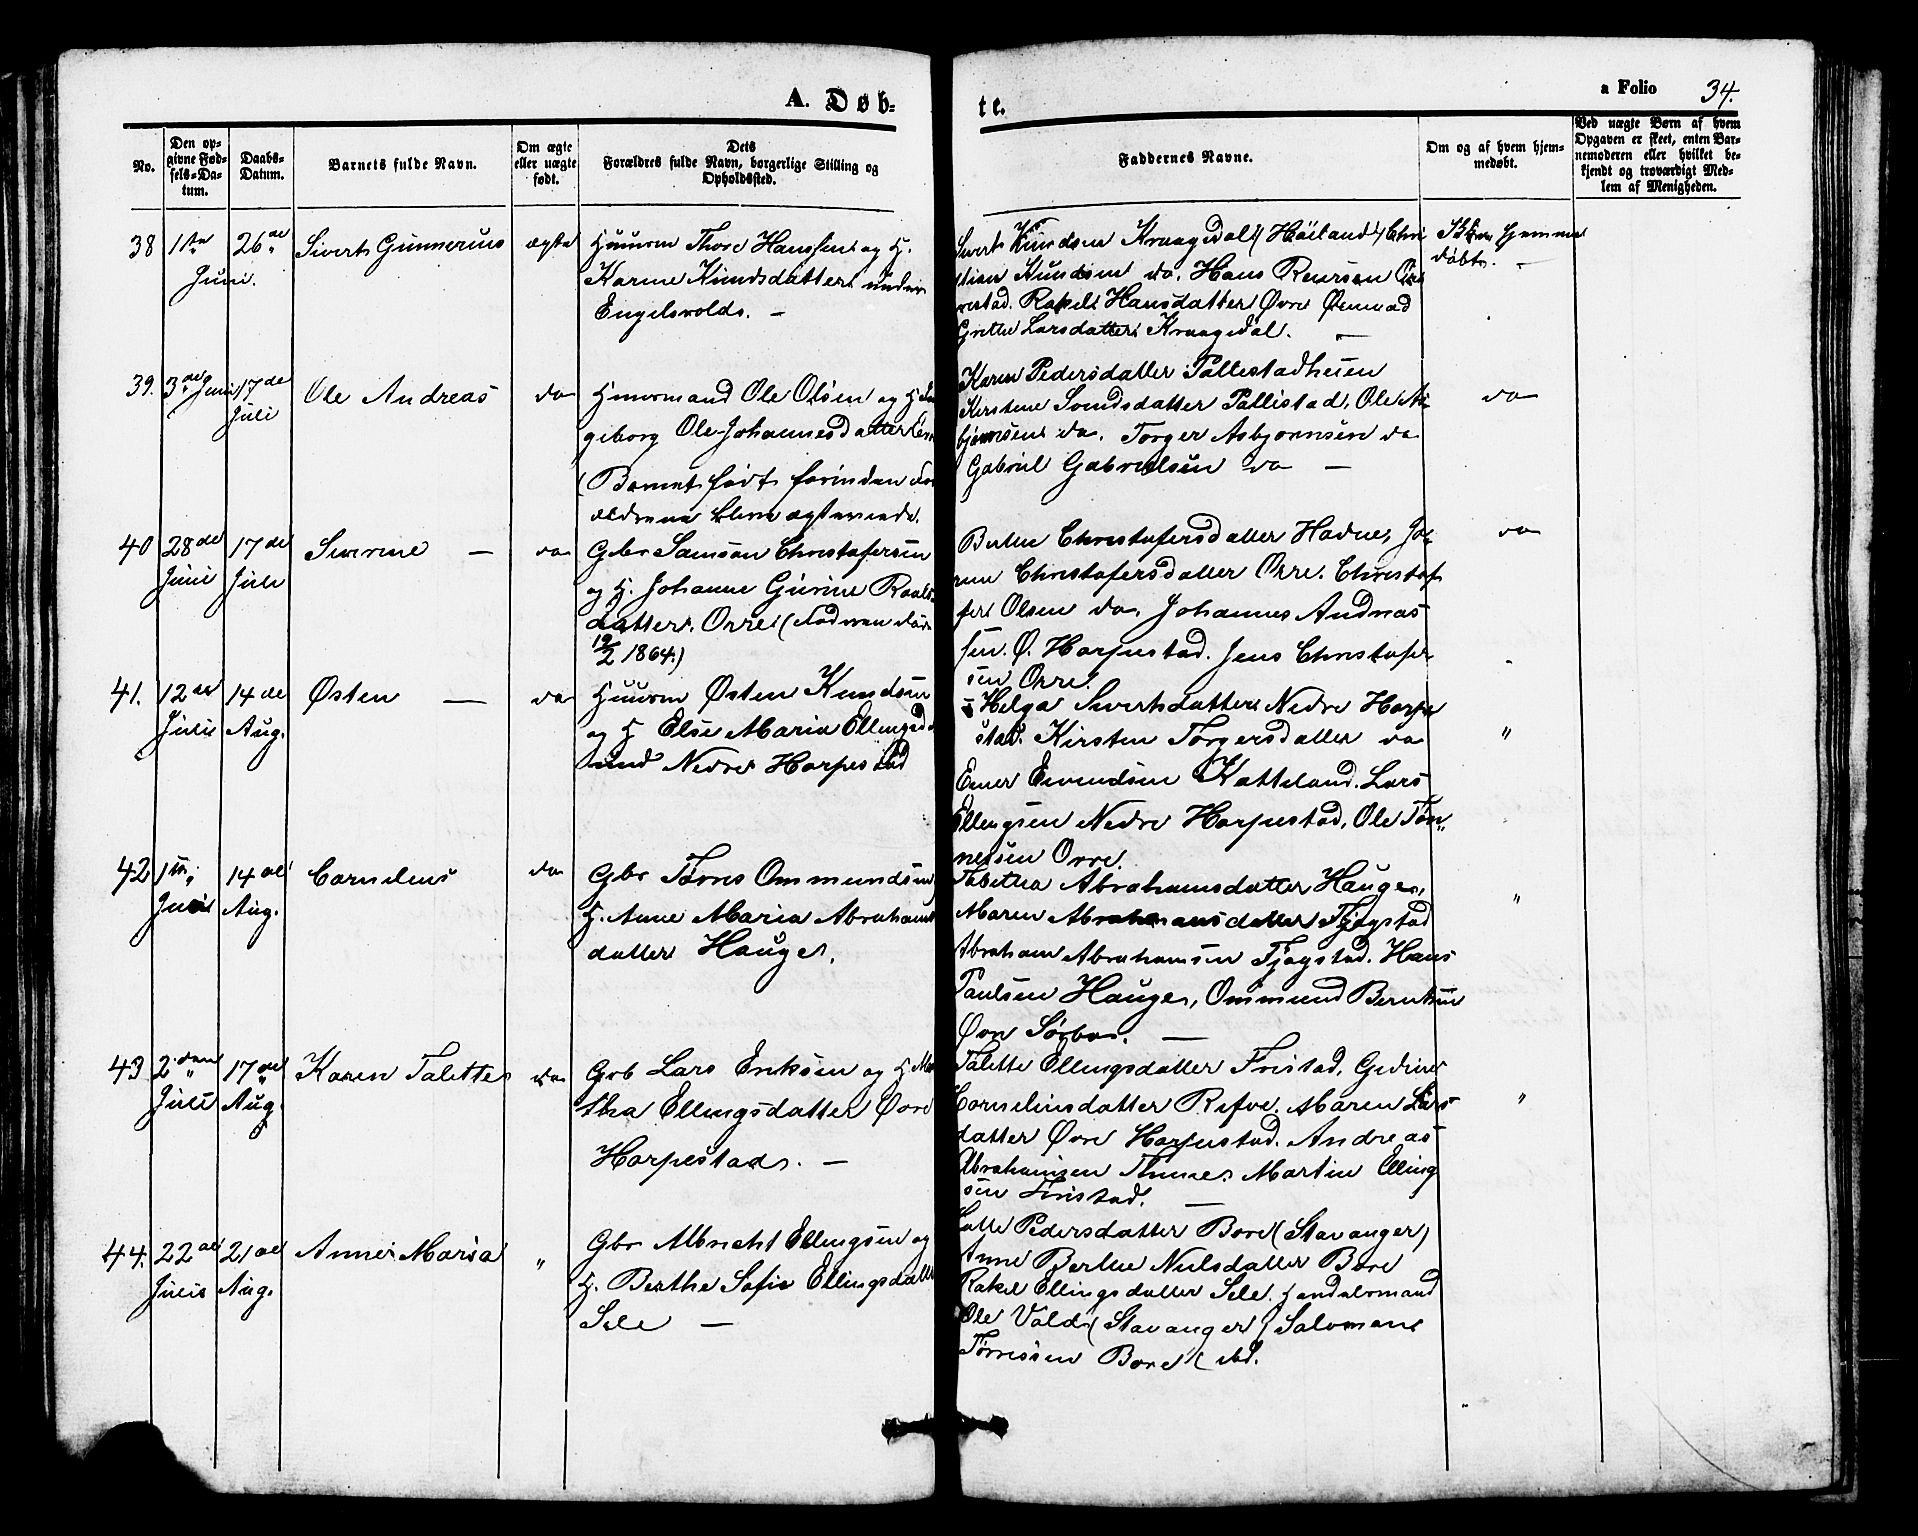 A. Døb-
te.
a Folio 34.
No.
Den op-
givne Fød-
sels-Da-
tum.
Daabs-
Datum.
Barnets fulde Navn.
Om ægte
eller uægte
født.
Dets
Forældres fulde Navn, borgerlige Stilling og
Opholdssted.
Faddernes Navne.
Om og af hvem hjem-
medøbt.
Ved uægte Børn af hvem
Opgaven er skeet, enten Bar-
nemoderen eller hvilket be-
kjendt og troværdigt Med-
lem af Menigheden.
38
1ste
Juni.
26de
Sivert Gunnerius
ægte
Huusm Thore Hanssen og H.
Karine Knudsdatter under
Engelsvold. —
Sivert Knudsen Kraagedal (Höiland) Chri
stian Knudsen do. Hans
Rakel Hansdatter Øvre
Grethe Larsdatter Kraagedal. —
Ikke hjemme
døbt. —
39.
3de Juni
17de
Juli
Ole Andreas
do
Huusmand Ole Olsen og H. In
geborg Ole-Johannesdatter
(Barnet født forinden For
ældrene bleve ægteviede.
Karen Pedersdatter
Kirstene Svendsdatter Pallestad, Ole As
bjørnsen do. Torger Asbjørnsen do
Gabriel Gabrielsen do —
do
40
28de
Juni
17de
Juli
Severine —
do
Gbr Samson Christofersen
og H. Johanne Gurine Roals
datter. Orre (
19/2 1864.)
Berthe Christofersdatter Hadne, Jo
rine Christofersdatter Orre. Christof
fer Olsen do. Johannes Andreas
sen. Ø. Harpestad. Jens Christofer
sen Orre.
do
41.
12te
Juli
14de
Aug.
Østen —
do
Huusm Østen Knudsen
og H Else Maria Ellingsd
Nedre Harpestad
Helga Sivertsdatter Nedre Harpe
stad. Kirsten Torgersdatter do
Einer Eivindsen Katteland. Lars
Ellingsen Nedre Harpestad, Ole Tøn-
nesen Orre.
"
42
1ste
14de
Aug.
Cornelius
do
Gbr Tørres Ommundsen
H. Anne Maria Abrahams
datter Hauge.
Tabitha Abrahamsdatter Hauge,
Maren Abrahamsdatter Tjøgstad
Abraham Abrahamsen Tjøgstad. Hans
Paulsen Hauge, Ommund Berntsen
Øvre Sørbø. —
"
43
2den
Juli
17de
Aug.
Karen Talette
do
Grb Lars Eriksen og H Mar
tha Ellingsdatter Øvre
Harpestad. —
Talette Ellingsdatter Fristad, Gurine
Cornelinsdatter Refve. Maren Lars
datter Øvre Harpestad. Andreas
Abrahamsen Thune. Martin Elling
sen Fristad. —
"
44.
22de
Juli
21de
Aug.
Anne Maria
"
Gbr Albricht Ellingsen og
H. Berthe Sofie Ellingsdatter
Sele —
Pedersdatter Bore (Stavanger)
Anne Berthe Nilsdatter Bore
Rakel Ellingsdatter Sele. Handelsmand
Ole Vold (Stavanger) Salomon
Tørresen Bore (ibd.